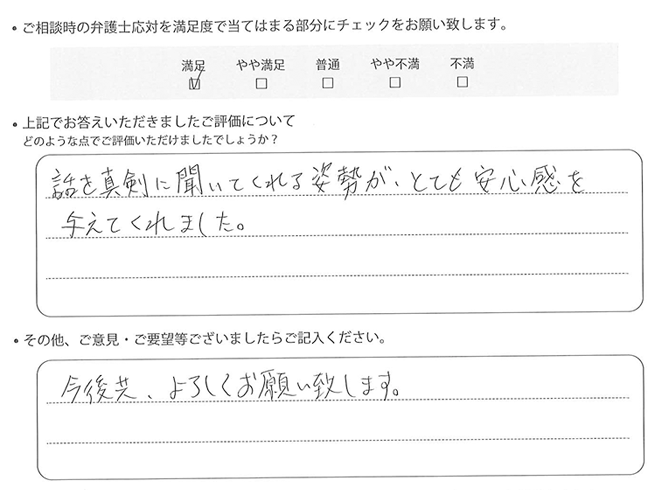 ・ご相談時の弁護士応対を満足度で当てはまる部分にチェックをお願い致します。
満足 やや満足 普通 やや不満 不満
☑ □ □ □ □
・上記でお答えいただきましたご評価について
どのような点でご評価いただけましたでしょうか？
話を真剣に聞いてくれる姿勢が、とても安心感を
与えてくれました。
・その他、ご意見・ご要望等ございましたらご記入ください。
今後共、よろしくお願い致します。